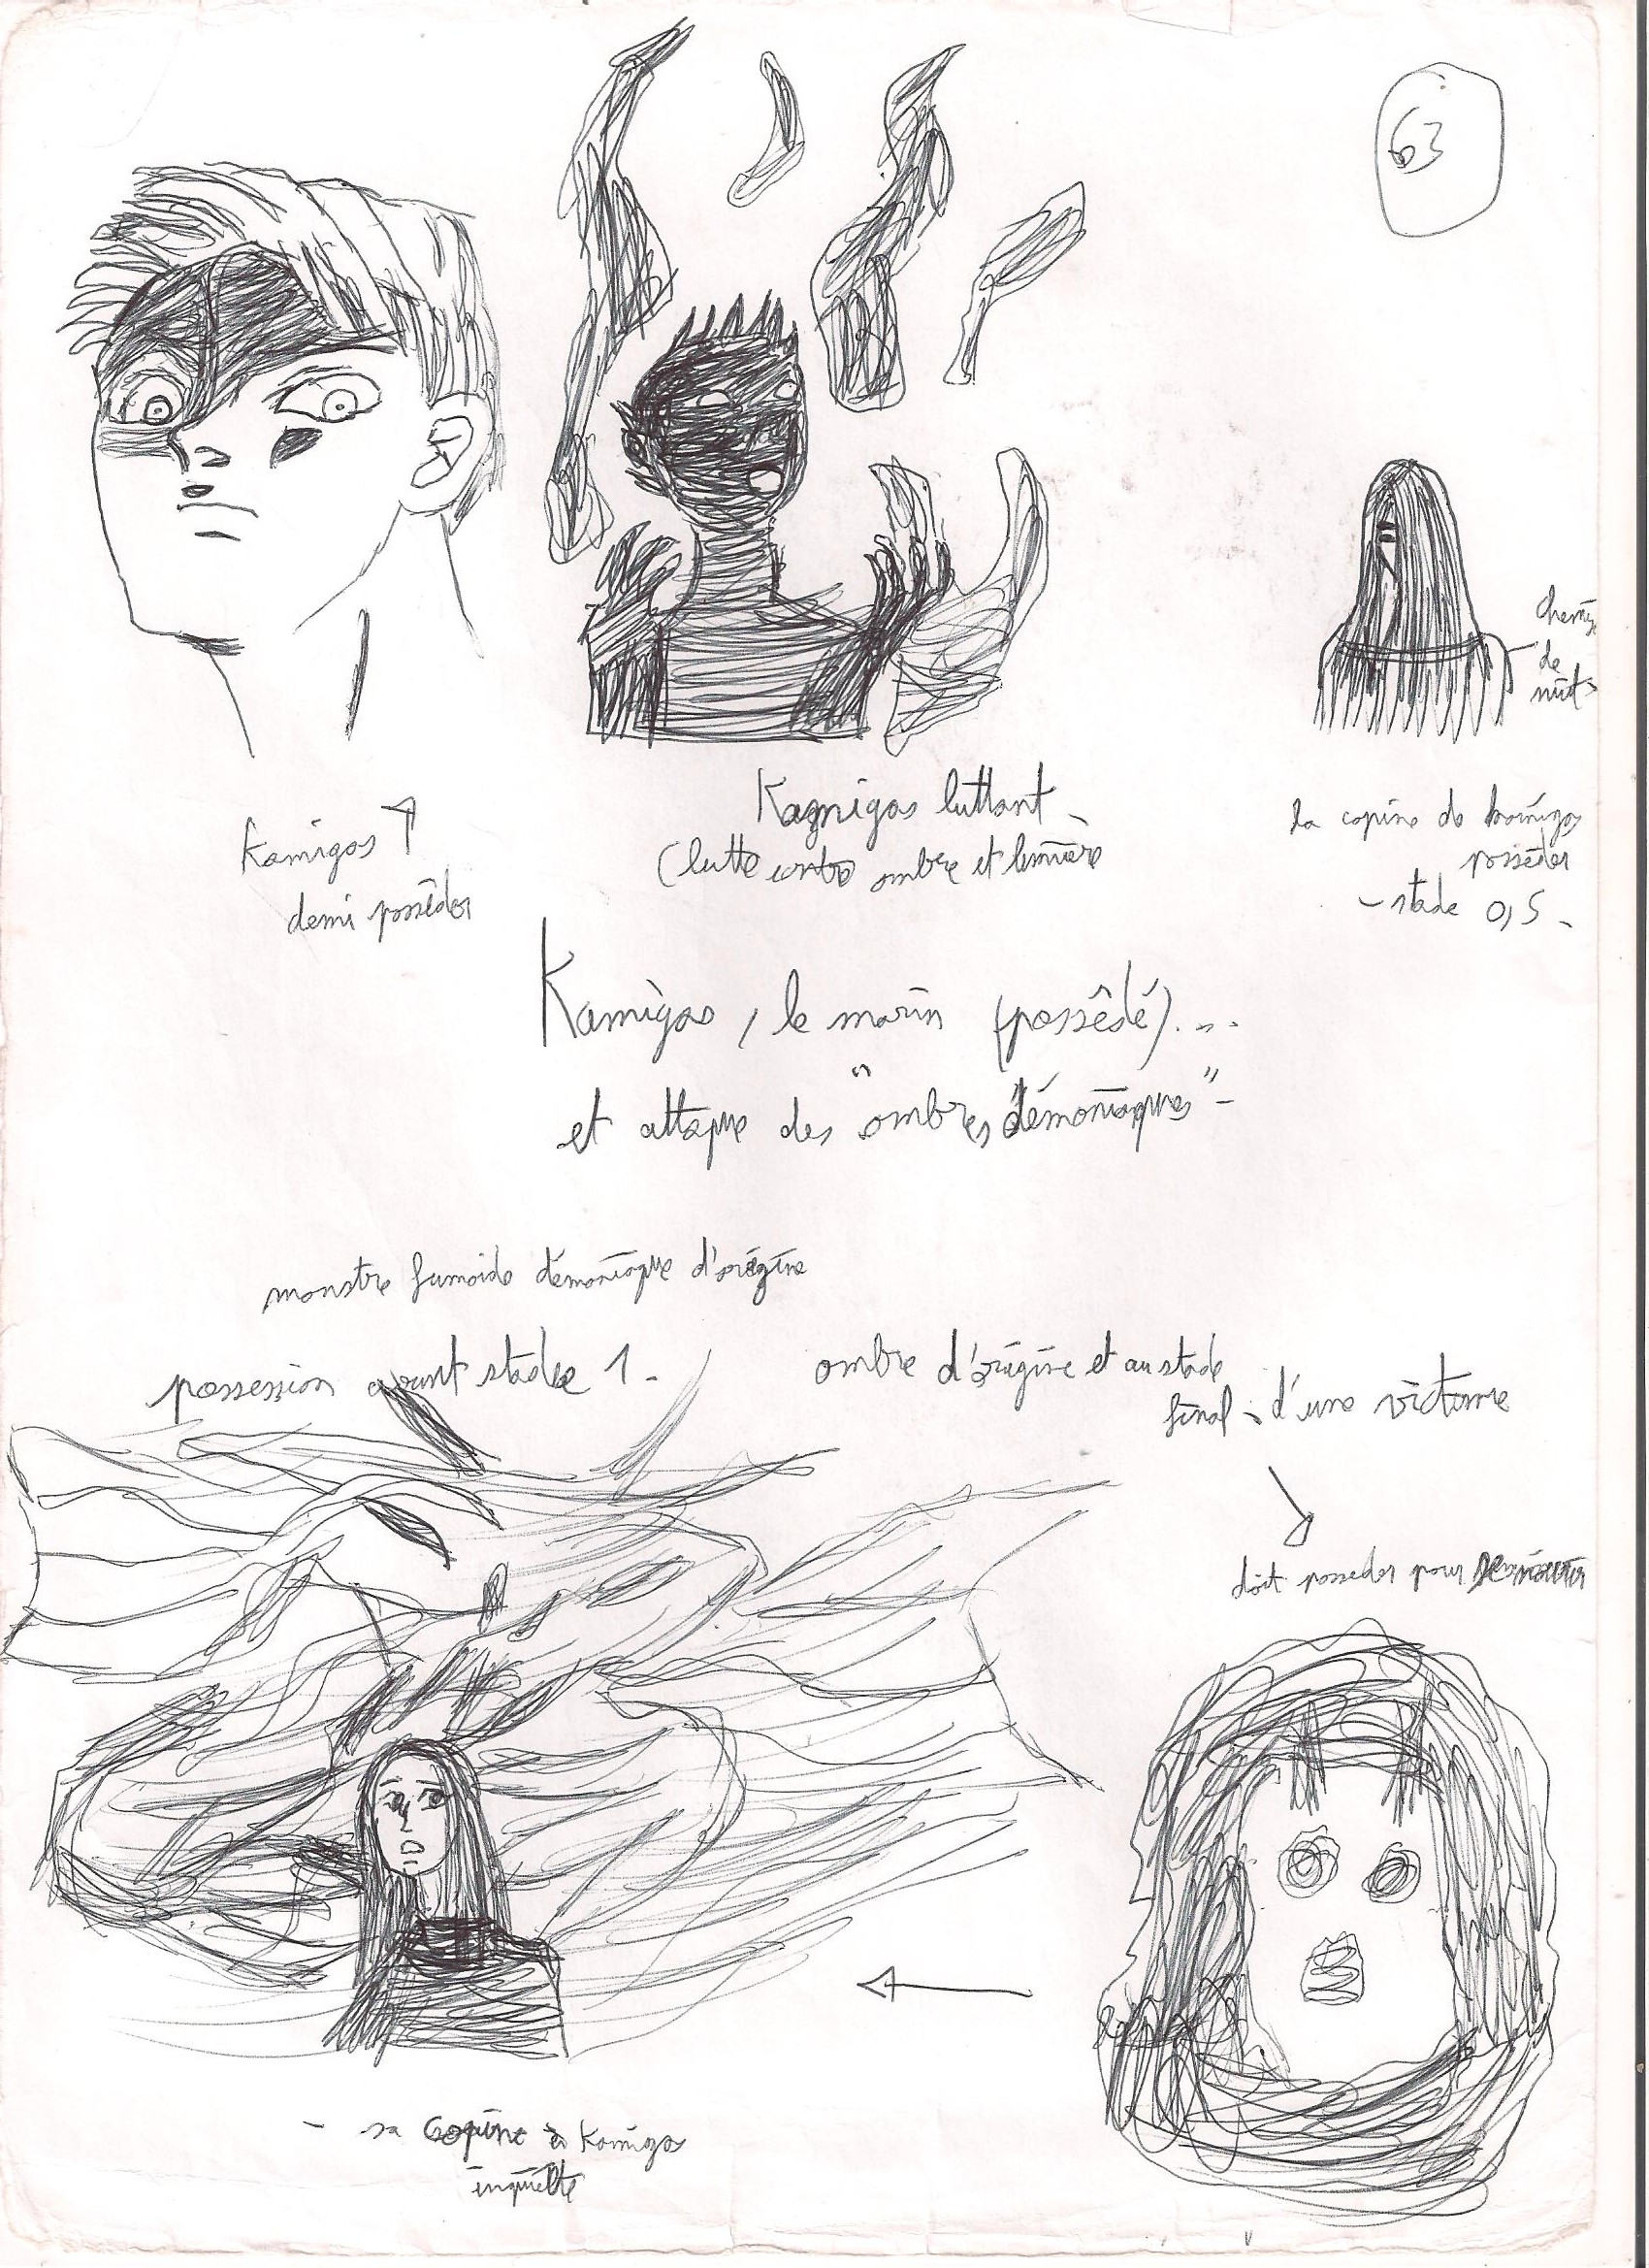 63
chemise
de
nuit
Kamigas
demi possêder
Kamigas luttant -
(lutte entre ombre et lumière
la copine de kamigas
possèder
- stade 0,5 -
Kamigas, le marin (possêdé)...
et attaque des "ombres démoniaques" -
monstre fumoide démoniaque d'origine
possession avant stade 1 -
ombre d'origine et au stade
final - d'une victime
doit posseder pour
- sa copine à Kamigas
inquiète